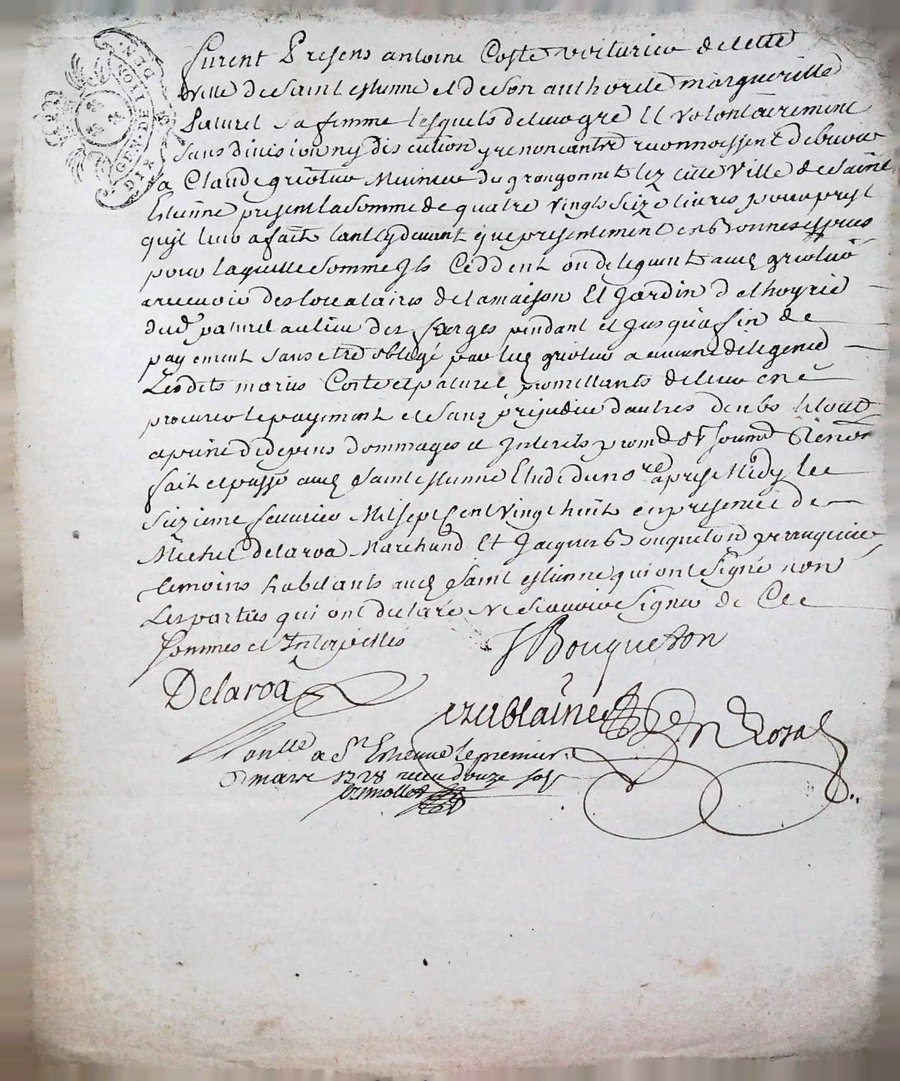 GEN. DE LION DIX DEN.
furent Presens antoine Coste voiturier de cette
ville de saint estienne et de son authorité margueritte
Paturel sa femme lesquels de leur gré Et volontairement
sans division ny discution y renoncant reconnoissent debvoir
a Claude griotier Meunier du grangonnet lez cette Ville de Saint
Estienne present la somme de quatre vingts seize livres pour prest
quil leur a fait tant cy devant que presentement en bonnes especes
pour laquelle somme Ils Ceddent ou deleguent aud griotier
a recevoir des locataires de la maison Et Jardin d'
dud paturel au lieu des forges pendant et Jusqua fin de
payement sans etre obligé par led griotier a aucune diligence
Lesdits maries Coste et paturel promettants de leur en
procurer le payment et sans prejudice d'autres deubs le tout
a peine de depens dommages et Interets prom obl soumis Renon
fait et passé aud Saint estienne Etude du no.re apres Midy le
seizieme fevrier Mil sept Cent vingt huit en presence de
Michel delaroa Marchand Et Jacques Bouqueton perruquier
temoins habitants aud Saint estienne qui ont signé non
Les parties qui ont declaré ne scavoir signer de Ce
sommes et Interpelles
J Bouqueton
Delaroa
Conlle a St Estienne le premier
mars 1728 receu douze sols